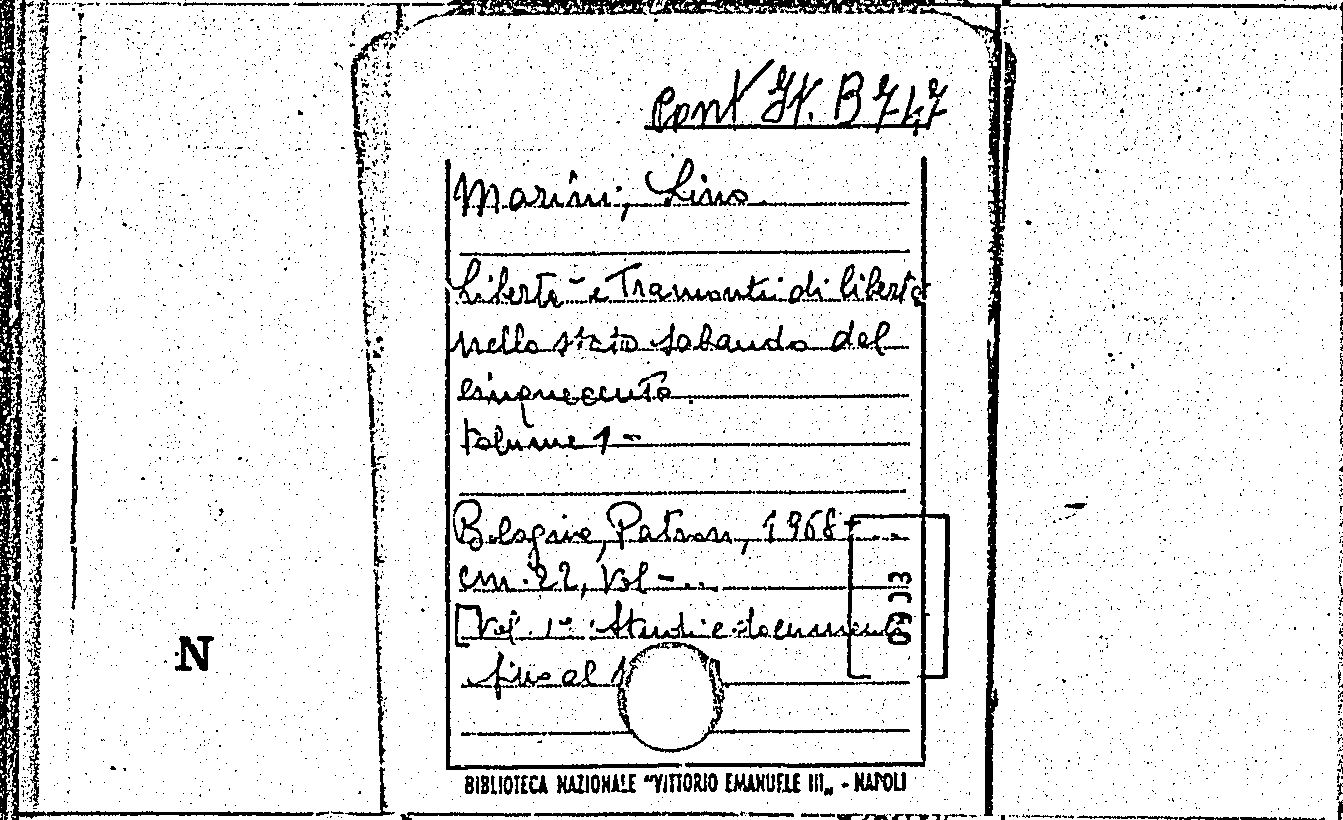 Cont It. B 747
Marini, Lino.
Libertà e Tramonti di libertà
nello stato sabaudo del
cinquecento.
Volume 1 -
Bologna, Patron, 1968 - ...
cm. 22, Vol - ..
[Vol. 1°: Studi e documenti
fino al 1
N
BIBLIOTECA NAZIONALE "VITTORIO EMANUELE III„ - NAPOLI